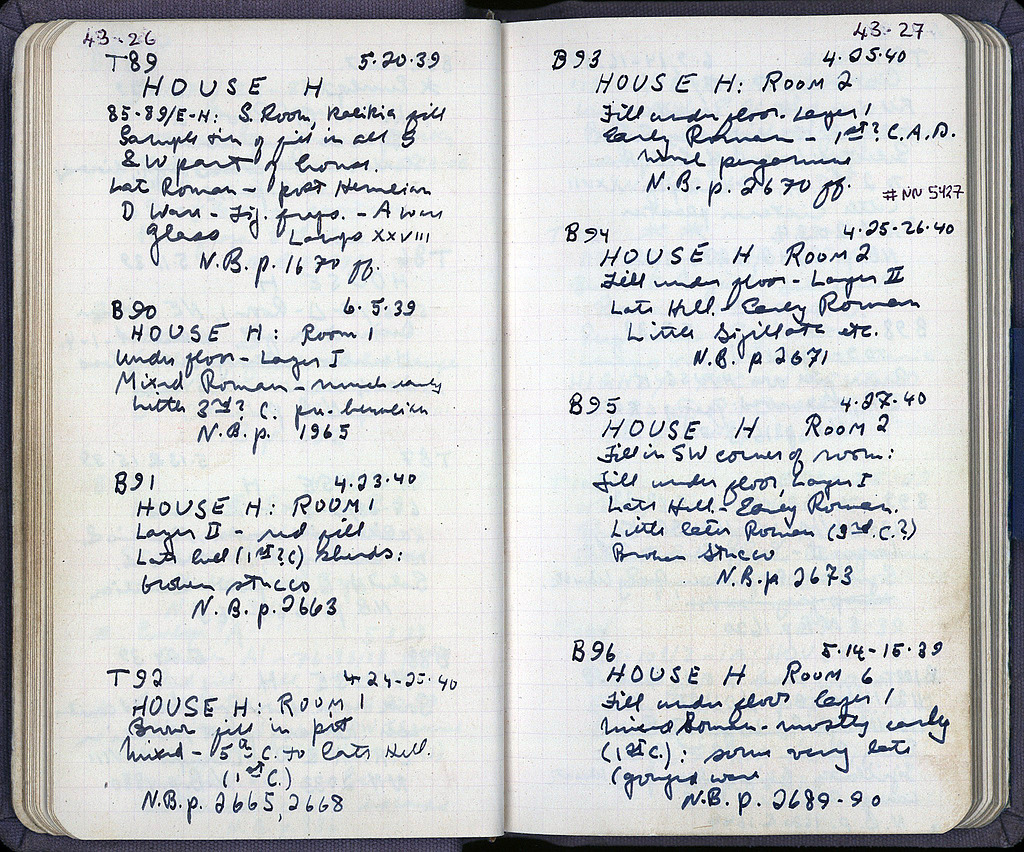 43-26
T89 5.20.39
HOUSE H
85-89/E-H: S. Room, Kalikia fill
Sampling of fill in all S
& W part of house.
Late Roman - post Herulian
D Ware - Fig. frags. - A ware
glass Lamps XXVIII
N.B. p. 1670 ff.
B90 6.5.39
HOUSE H: Room 1
Under floor - Layer I
Mixed Roman - much early
little 3rd? C. pre-herulian
N.B. p. 1965
B91 4.23.40
HOUSE H: ROOM 1
Layer II - red fill
Late hell (1st? C) sherds:
brown stucco
N.B. p. 2663
T92 4.24-25.40
HOUSE H: ROOM 1
Brown fill in pit
Mixed - 5th C. to Late Hell.
(1st C.)
N.B. p. 2665, 2668
43-27
B93 4.25.40
HOUSE H: ROOM 2
Fill under floor. Layer I
Early Roman - 1st? C. A.D.
much pergamene
N.B. p. 2670 ff.
# NN 5427
B94 4.25-26.40
HOUSE H ROOM 2
Fill under floor - Layer II
Late Hell. - Early Roman
Little Sigillata etc.
N.B. p 2671
B95 4.27.40
HOUSE H ROOM 2
Fill in SW corner of room:
Fill under floor, Layer I
Late Hell. - Early Roman.
Little later Roman (3rd. C.?)
Brown Stucco
N.B. p 2673
B96 5.14-15.39
HOUSE H ROOM 6
Fill under floor layer I
mixed Roman - mostly early
(1st C.): some very late
(gouged ware
N.B. p. 2689-90